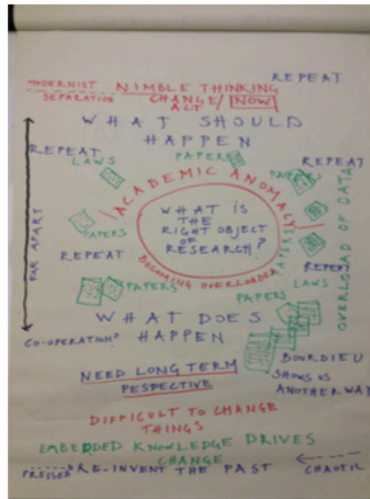 REPEAT
MODERNIST
SEPARATION
NIMBLE THINKING
CHANGE/ NOW
ACT
WHAT SHOULD
HAPPEN
REPEAT
LAWS
PAPERS
REPEAT
PAPERS
ACADEMIC ANOMALY
WHAT IS
THE
RIGHT OBJECT
OF
RESEARCH?
BECOMING OVERLOADED
FAR APART
PAPERS
PAPERS
OVERLOAD OF DATA
REPEAT
REPEAT
PAPERS
LAWS
PAPERS
WHAT DOES
HAPPEN
CO-OPERATION?
BOURDIEU
SHOWS US
ANOTHER WAY
NEED LONG TERM
PESPECTIVE
DIFFICULT TO CHANGE
THINGS
EMBEDDED KNOWLEDGE DRIVES
CHANGE
RE-INVENT THE PAST
CHAOTIC